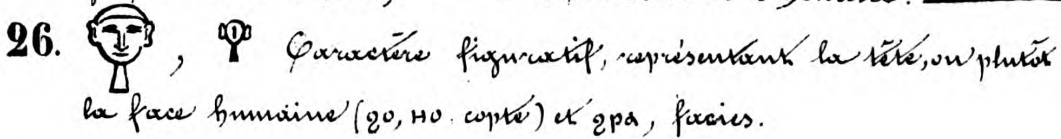 26. 𓁷, 𓁷 Caractère figuratif, représentant la tête, ou plutôt
la face humaine (ϩⲟ, HO copte) et ϩⲣⲁ, facies.